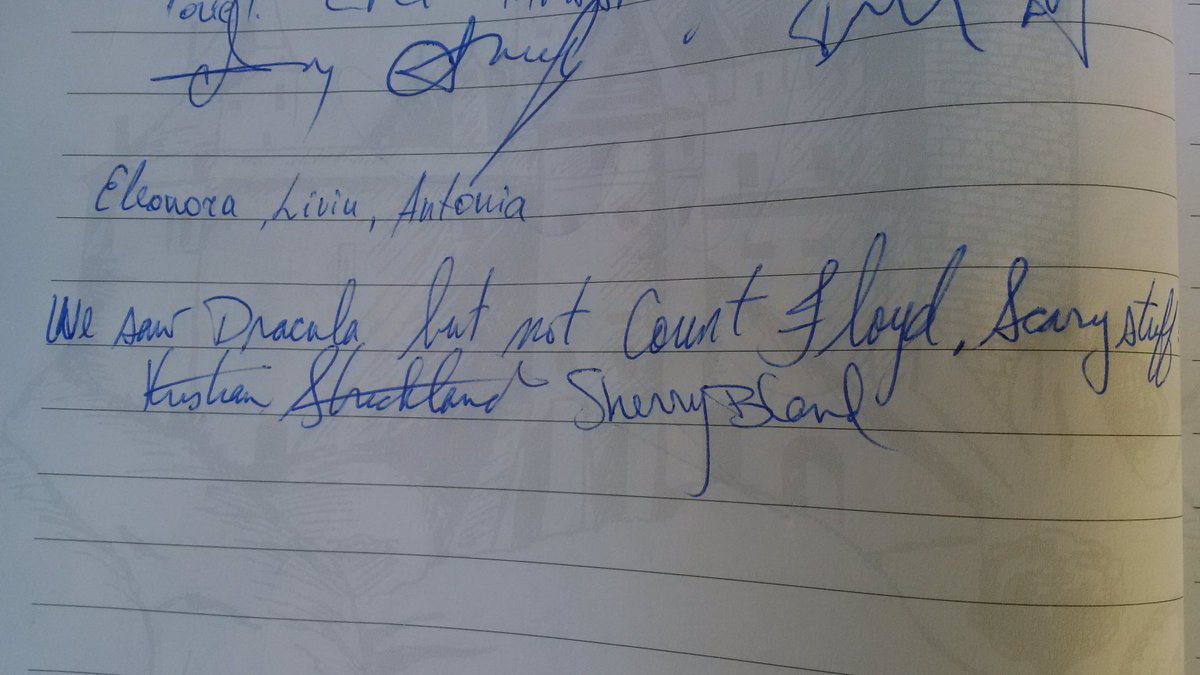 Eleonora, Liviu, Antónia
We saw Dracula, but not Count Floyd. Scary stuff!
Kristian Strickland Sherry Bland